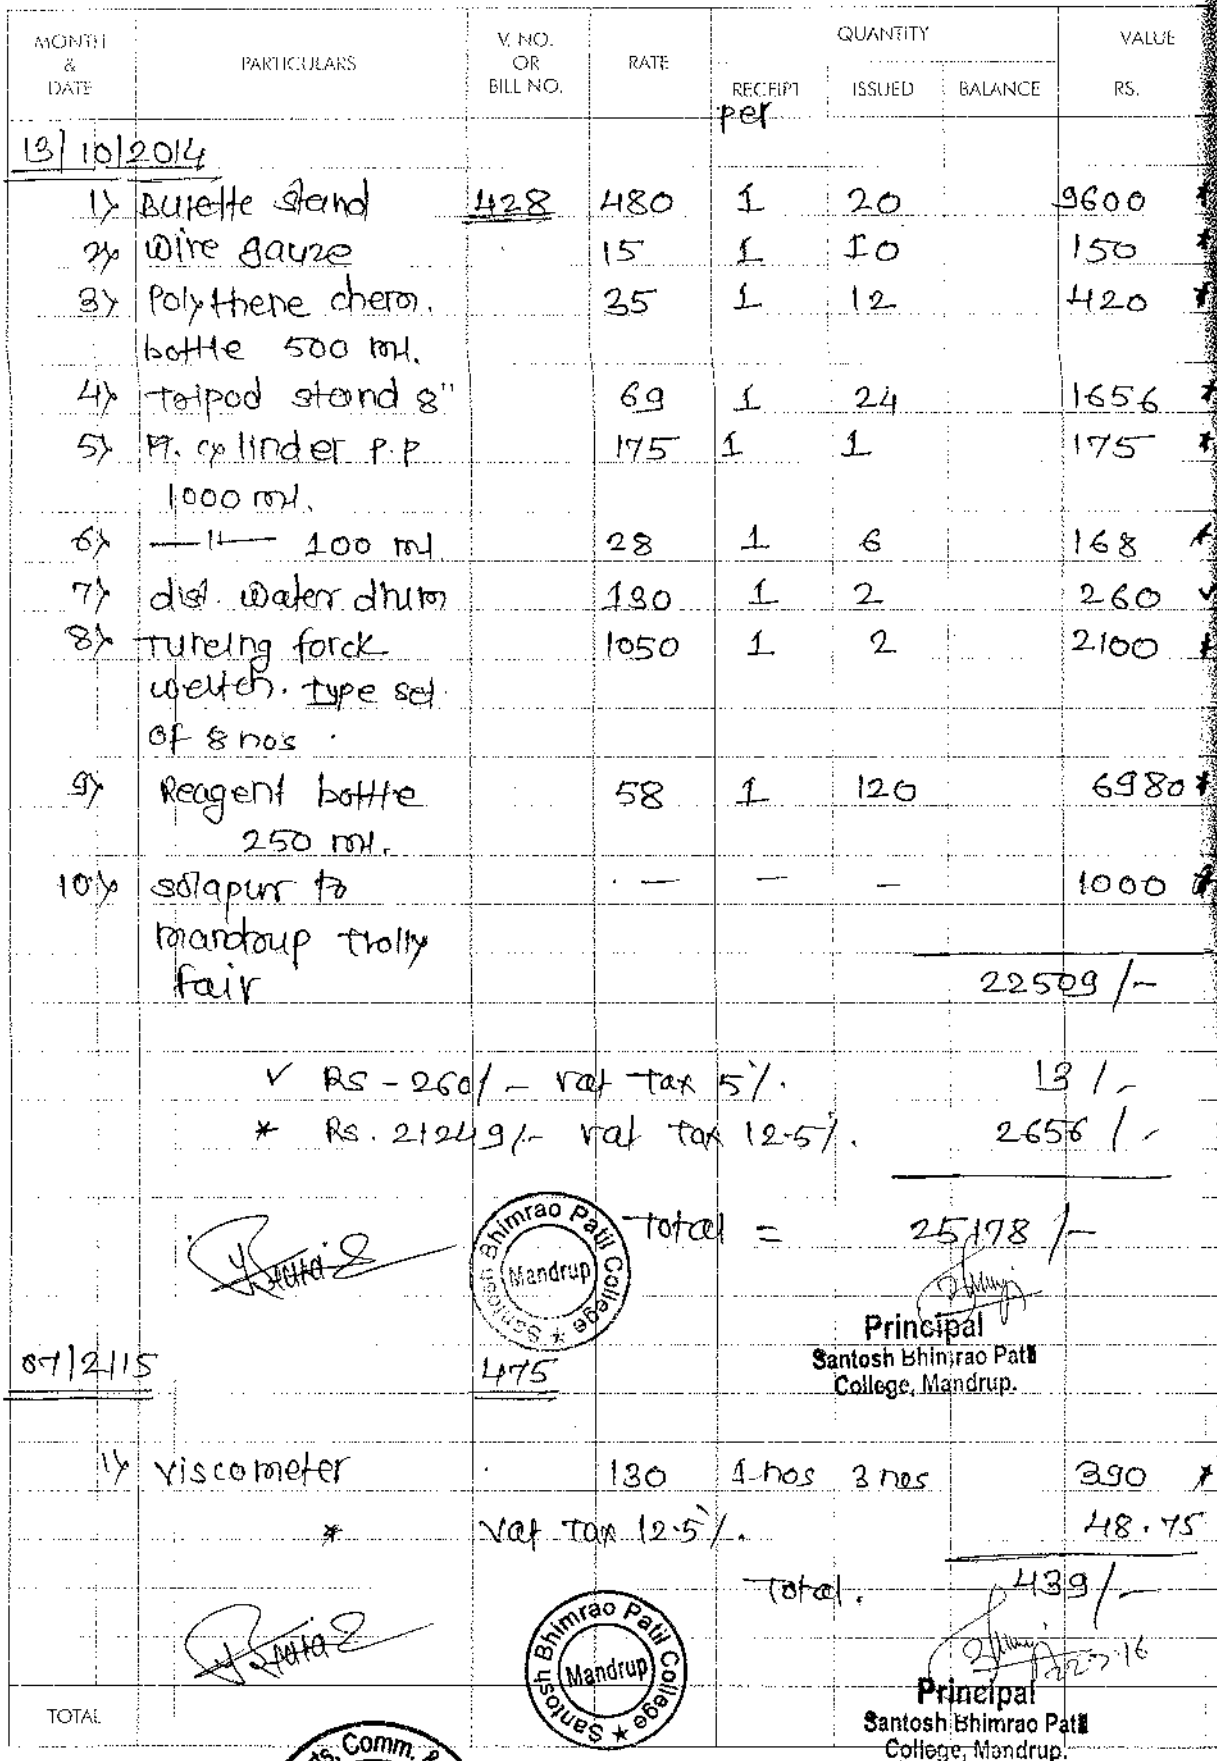 MONTH & DATE PARTICULARS V. NO. OR BILL NO. RATE QUANTITY VALUE
RECEIPT ISSUED BALANCE RS.
per
13/10/2014
1) Burette stand 428 480 1 20 9600 *
2) Wire gauze 15 1 10 150 *
3) Polythene chem. 35 1 12 420 *
bottle 500 ml.
4) Tripod stand 8" 69 1 24 1656 *
5) M. cylinder P.P 175 1 1 175 *
1000 ml.
6) —11— 100 ml 28 1 6 168 *
7) dist. water drum 130 1 2 260 ✓
8) Tuneing forck 1050 1 2 2100 *
type set
of 8 nos
9) Reagent bottle 58 1 120 6980 *
250 ml.
10) Solapur to - - - 1000 *
mandrup Trolly
fair 22509/-
✓ RS - 260/- vat Tax 5%. 13/-
* Rs. 21249/- vat Tax 12.5%. 2656/-
Total = 25178/-
Santosh Bhimrao Patil College
Mandrup
Principal
Santosh Bhimrao Patil
College, Mandrup.
07/2/15 475
1) viscometer 130 1 nos 3 nos 390 *
* Vat Tax 12.5%. 48.75
Total. 439/-
Santosh Bhimrao Patil College
Mandrup
Principal
Santosh Bhimrao Patil
College, Mandrup.
TOTAL
Comm. &